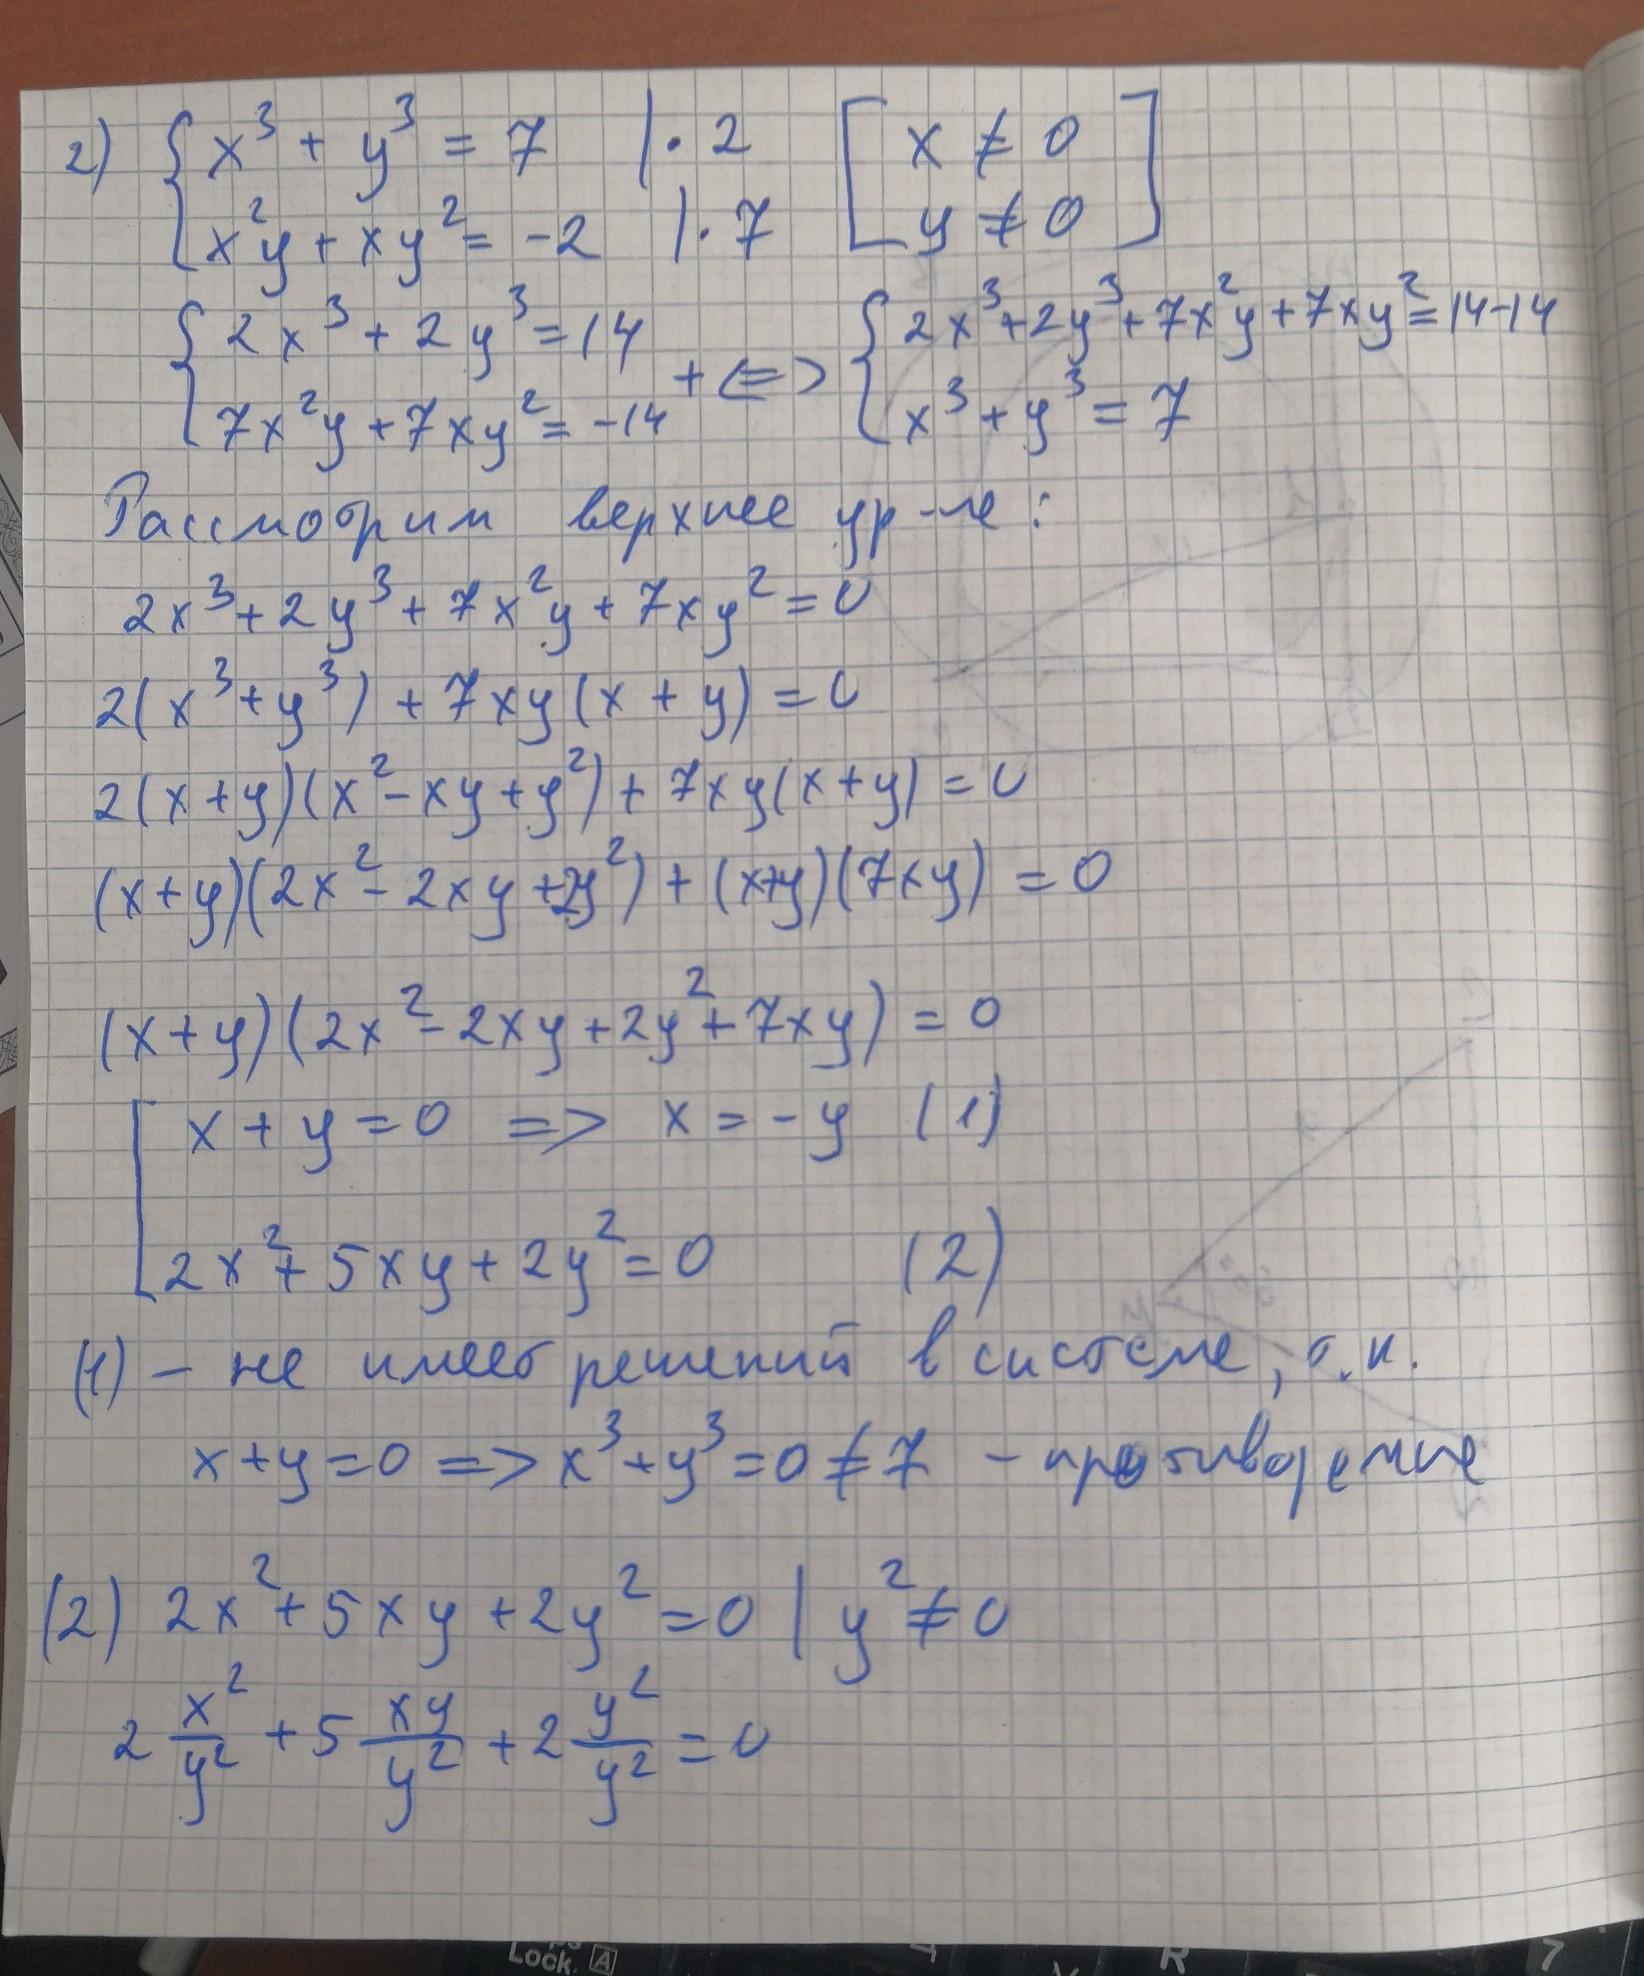 2) { x³ + y³ = 7 | · 2 [ x ≠ 0
x²y + xy² = -2 | · 7 y ≠ 0 ]
{ 2x³ + 2y³ = 14 + <=> { 2x³ + 2y³ + 7x²y + 7xy² = 14-14
7x²y + 7xy² = -14 x³ + y³ = 7
Рассмотрим верхнее ур-ие:
2x³ + 2y³ + 7x²y + 7xy² = 0
2(x³ + y³) + 7xy(x + y) = 0
2(x + y)(x² - xy + y²) + 7xy(x + y) = 0
(x + y)(2x² - 2xy + 2y²) + (x+y)(7xy) = 0
(x + y)(2x² - 2xy + 2y² + 7xy) = 0
[ x + y = 0 => x = -y (1)
2x² + 5xy + 2y² = 0 (2)
(1) - не имеет решений в системе, т.к.
x + y = 0 => x³ + y³ = 0 ≠ 7 - противоречие
(2) 2x² + 5xy + 2y² = 0 | y² ≠ 0
2 x²/y² + 5 xy/y² + 2 y²/y² = 0
Lock A
R
7